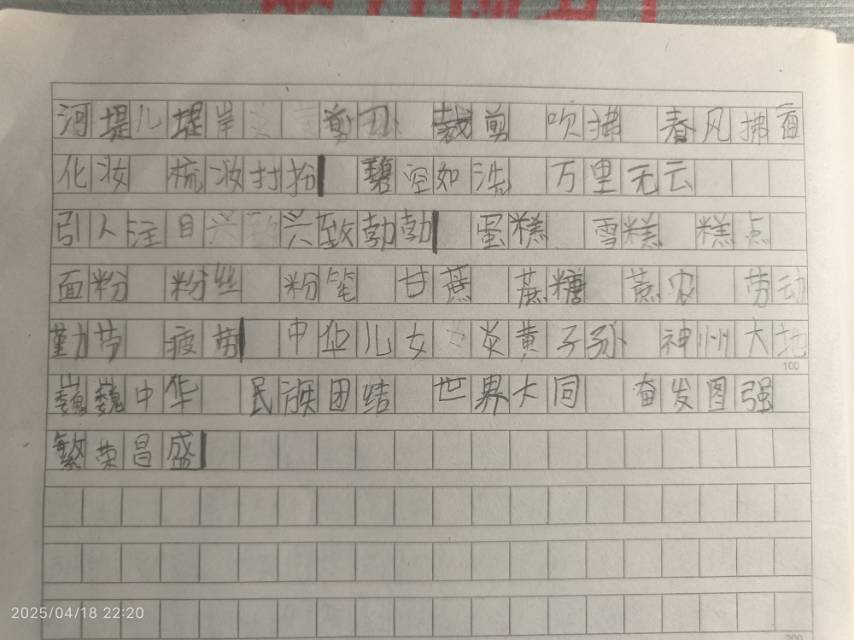 河堤 堤岸 剪刀 裁剪 吹拂 春风拂面
化妆 梳妆打扮 碧空如洗 万里无云
引人注目 兴致勃勃 蛋糕 雪糕 糕点
面粉 粉丝 粉笔 甘蔗 蔗糖 蔗农 劳动
勤劳 疲劳 中华儿女 炎黄子孙 神州大地
100
巍巍中华 民族团结 世界大同 奋发图强
繁荣昌盛
2025/04/18 22:20
200